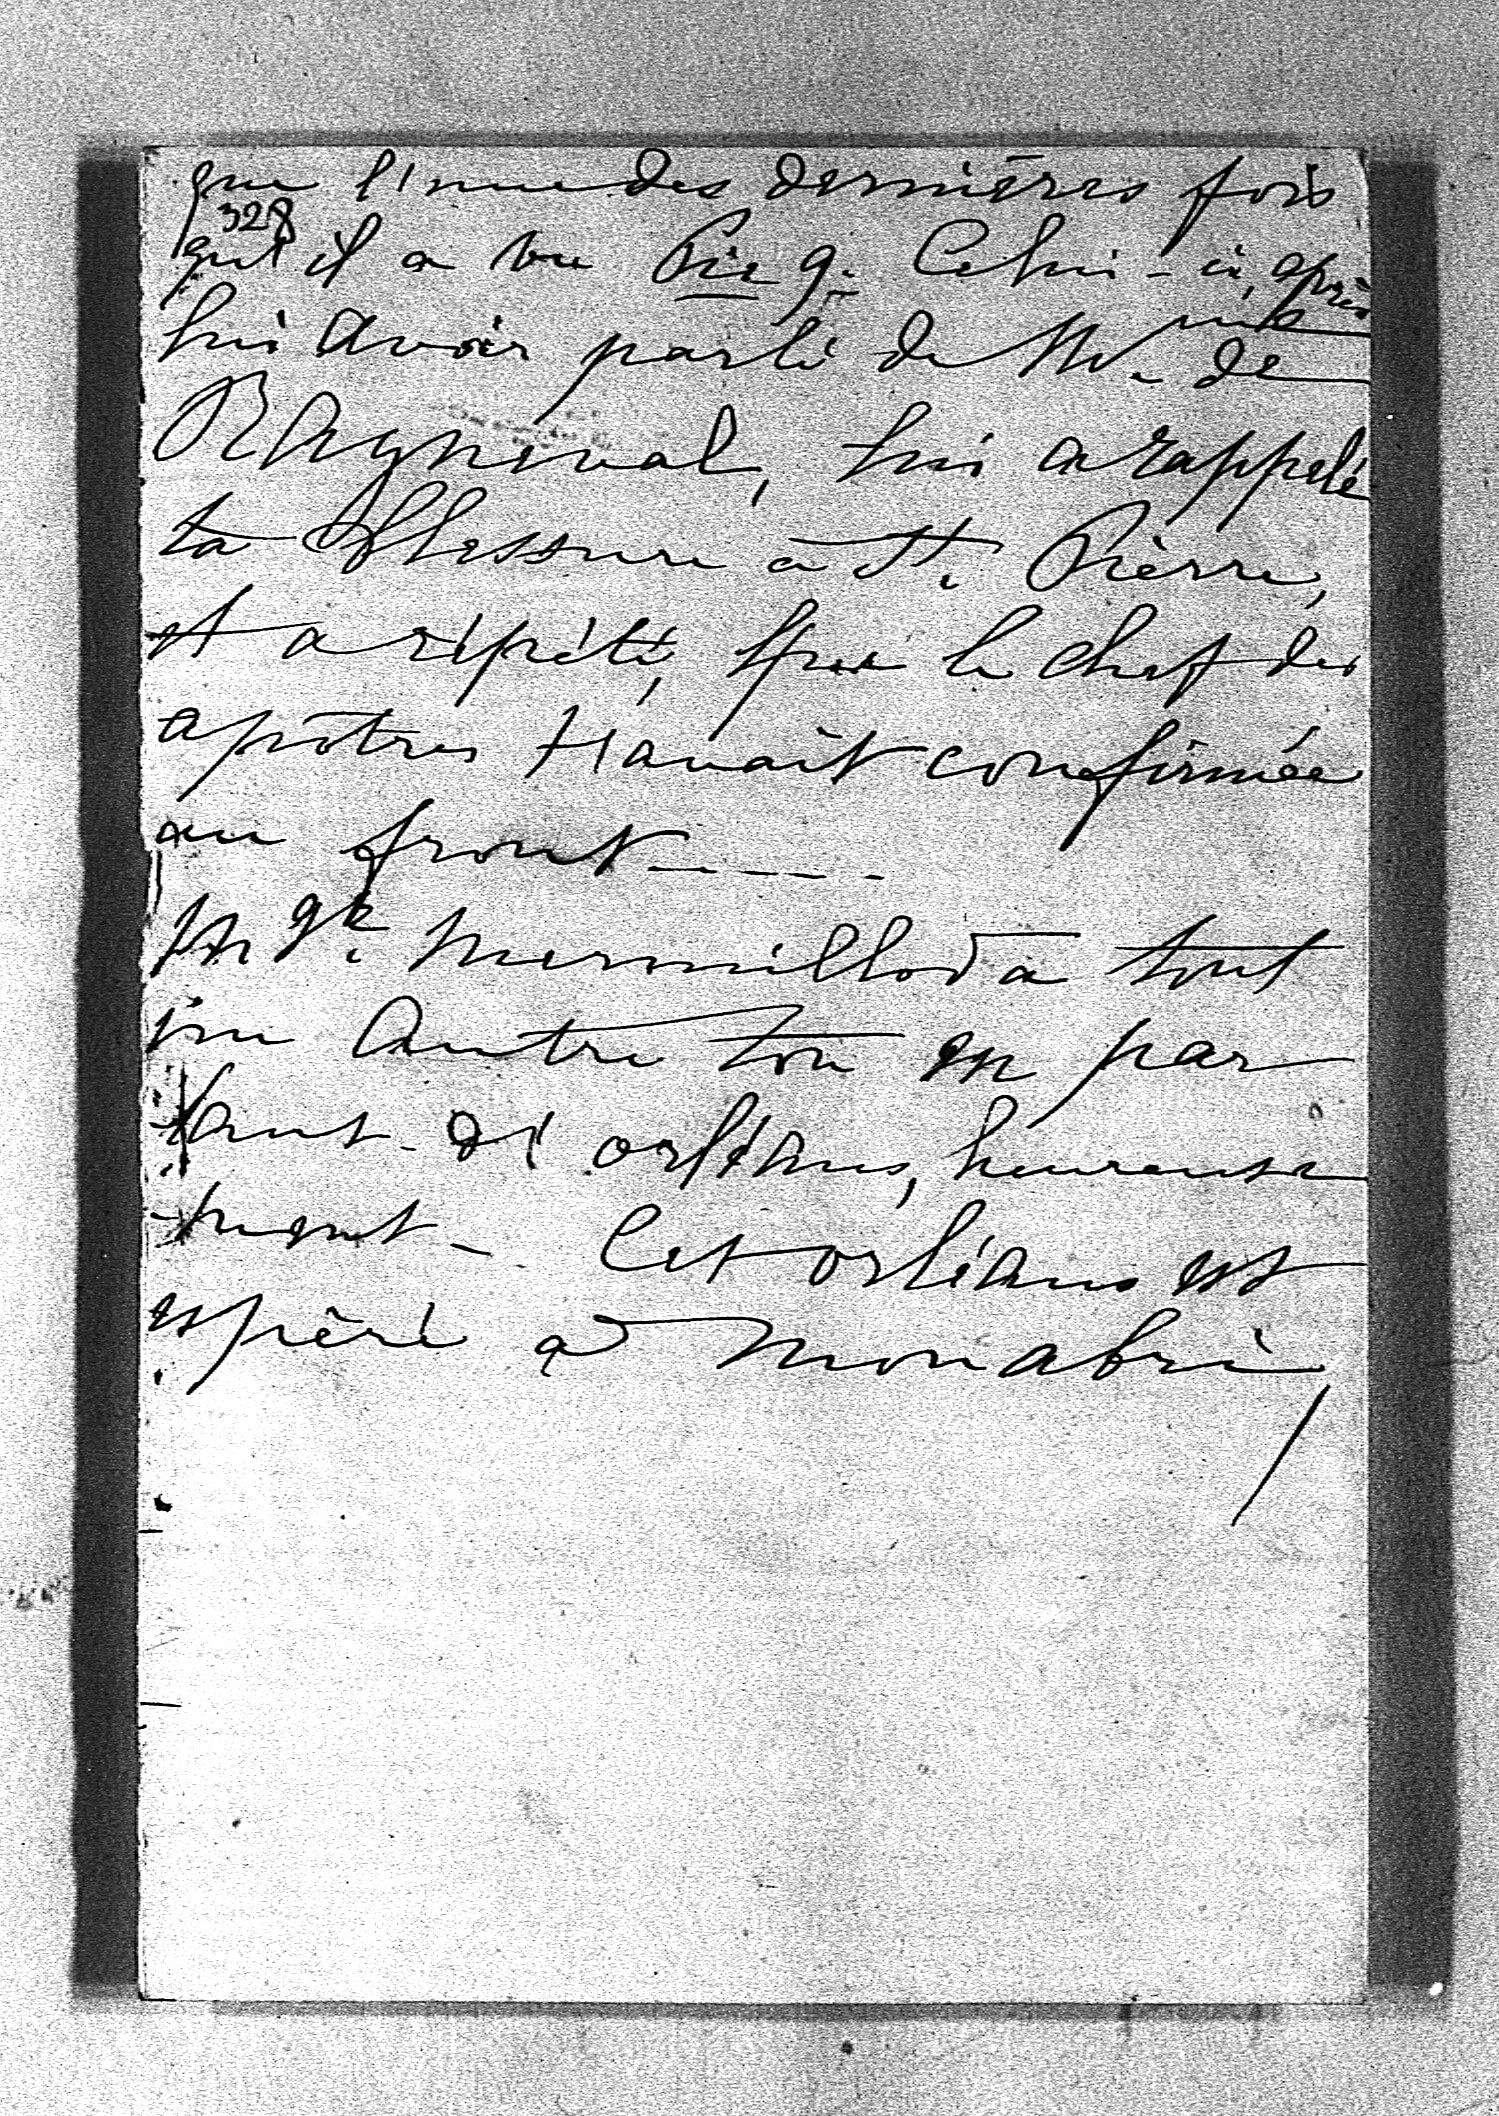 que l'une des dernières fois
328
qu'il a vu Pie 9. Celui-ci, après
lui avoir parlé de Mme de
RAyneval, lui a rappelé
ta blessure à St. Pièrre,
et a répété, que le chef des
apôtres t'avait confirmée
au front-----
Mgr. Mermillod a tout
un Autre ton en par
lant d'orléans, heureuse
ment- Cet orléans est
espèré à Monabri